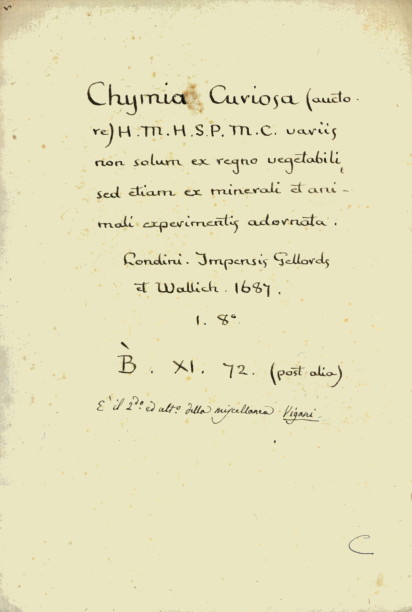 Chymia Curiosa (aucto-
re) H. M. H. S. P. M. C. variis
non solum ex regno vegetabili,
sed etiam ex minerali et ani-
mali experimentis adornata.
Londini. Impensis Gellords
et Wallich. 1687.
1. 8°
B̀. XI. 72. (post alia)
E' il 2do. ed ulto. della miscellanea Vigani.
C